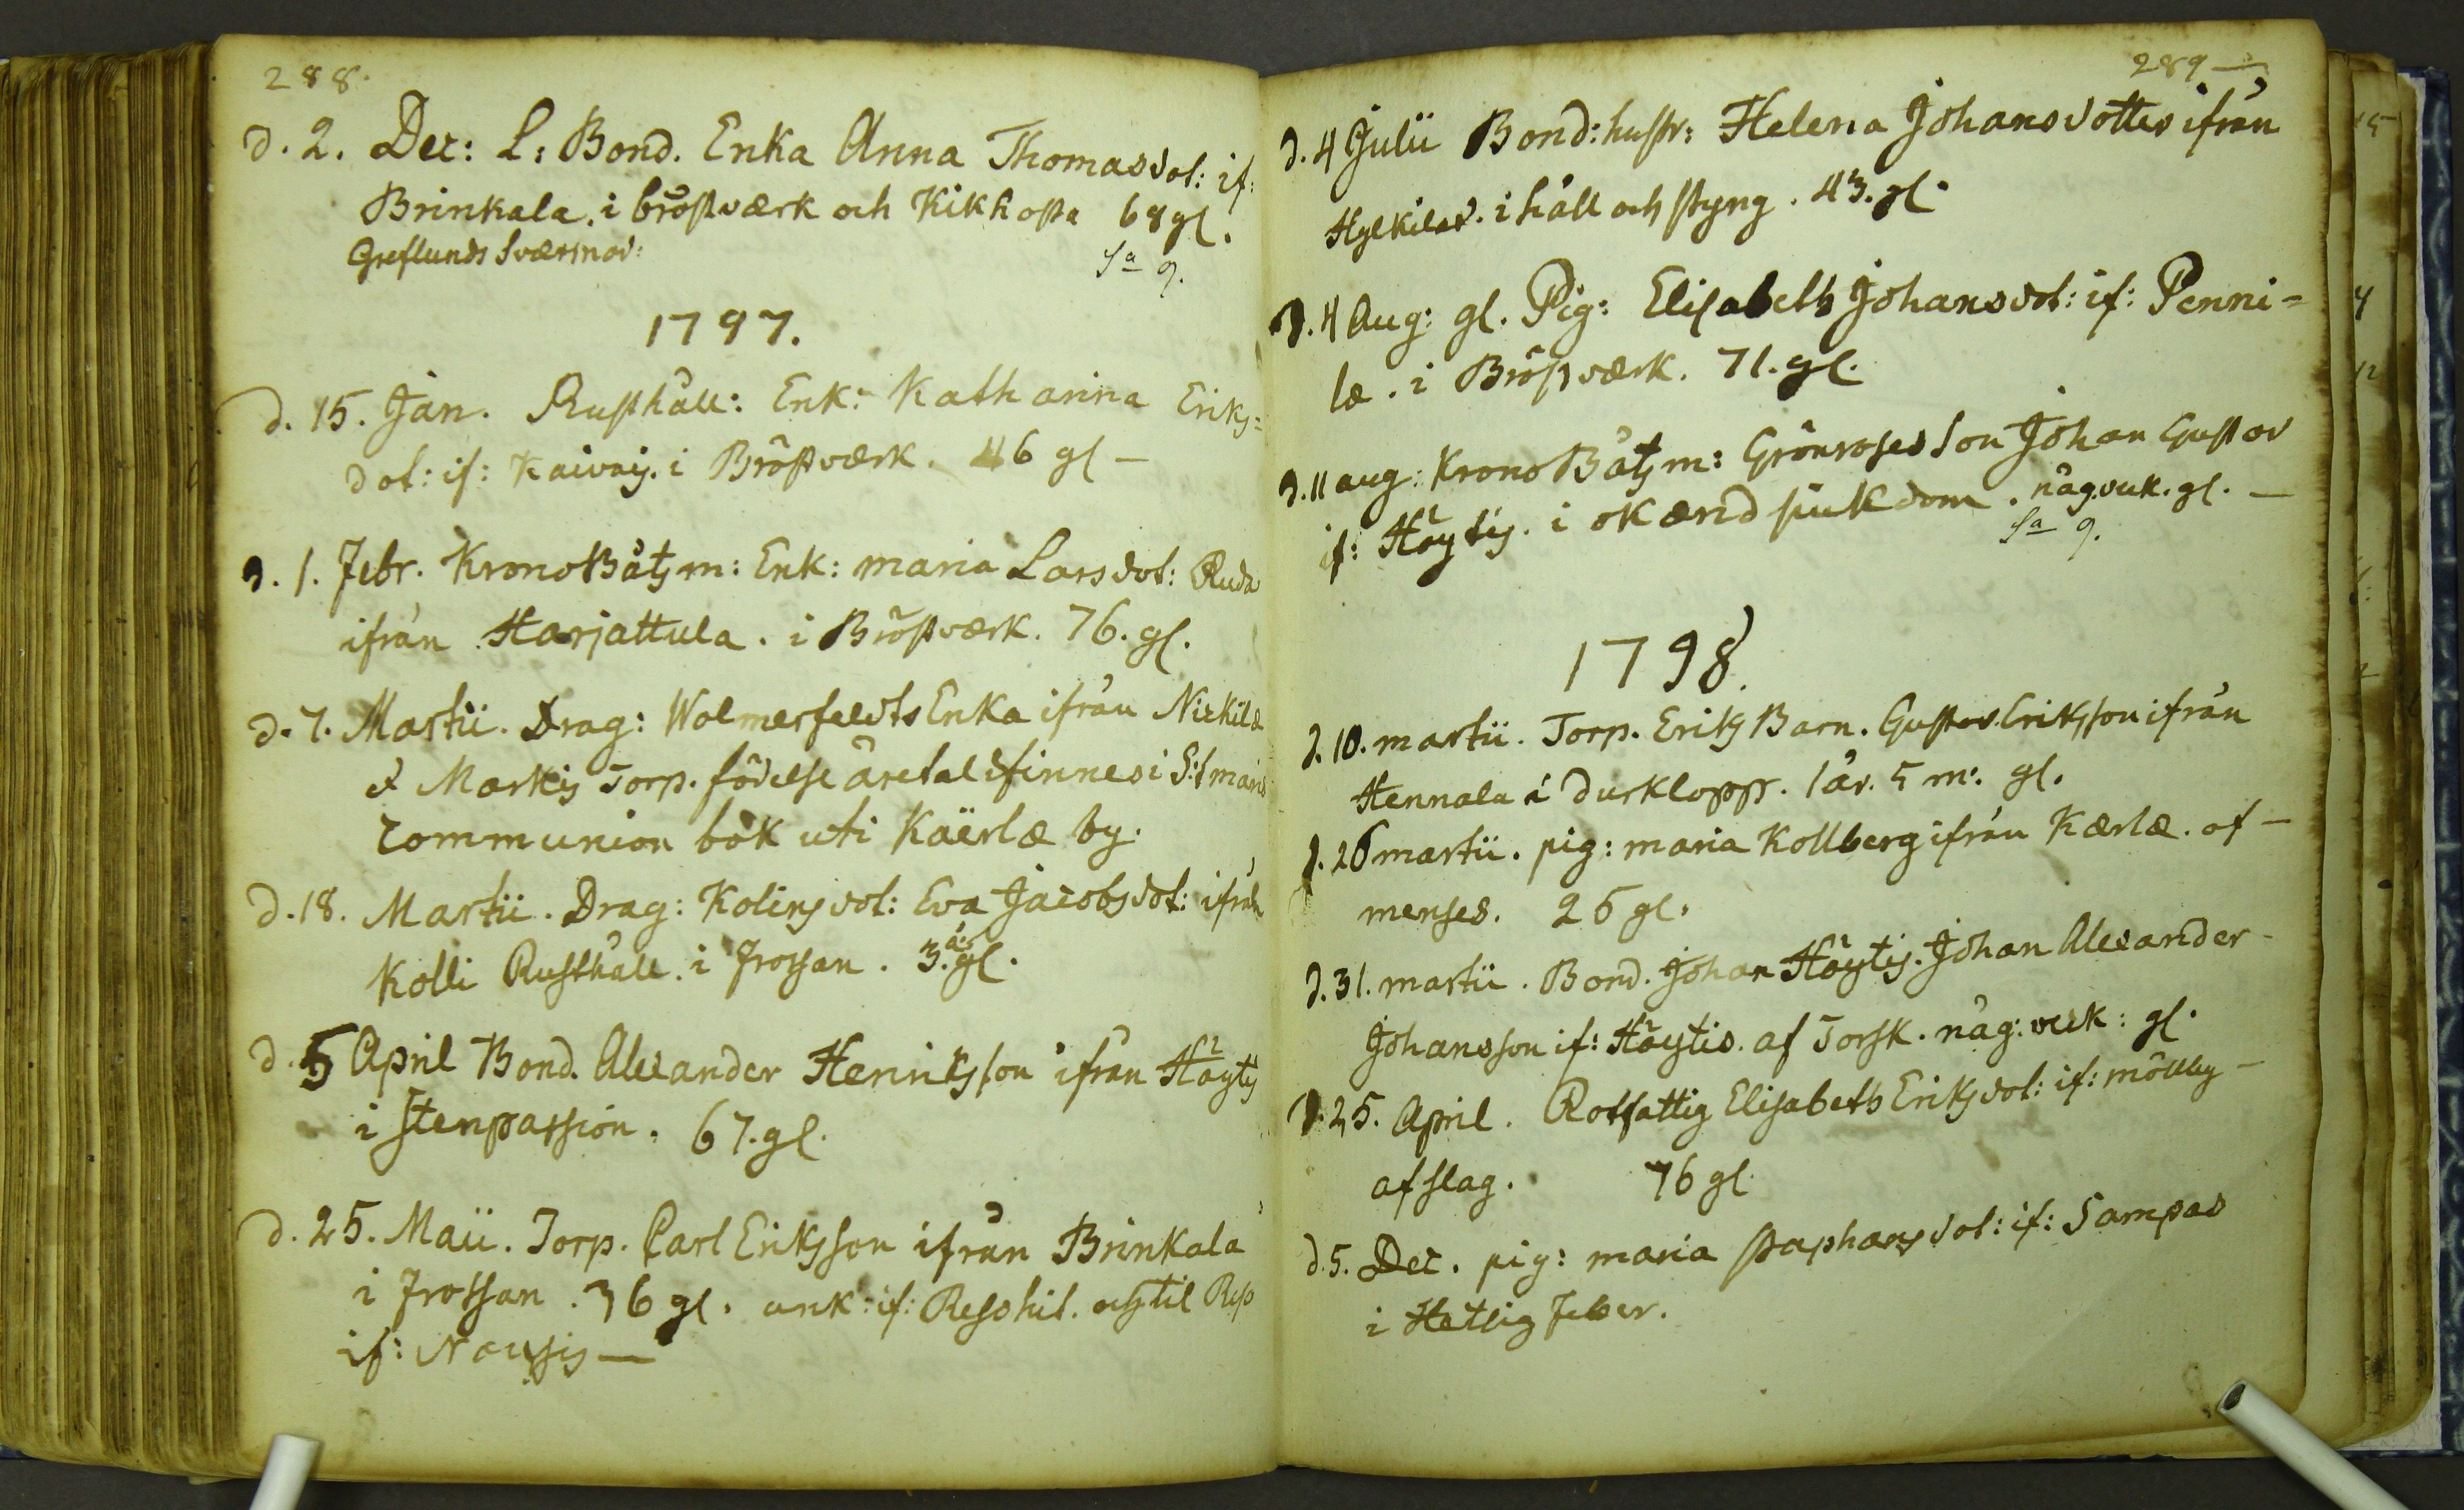 288.
d. 2. Dec: L: Bond. Enka Anna Thomasdot: if:
Brinkala. i bröstværk och Kikhosta 68 gl.
Greflunds Sværmod:
Sa 9.
1797.
d. 15. Jan. Rusthåll: Enk: Katharina Eriks=
dot: if: Kaivais. i Bröstværk. 46 gl —
d. 1. Febr. KronoBåtzm: Enk: maria Larsdot: Ruda
ifrån Harjattula. i Bröstværk. 76. gl.
d. 7. Martii. Drag: Wolmerfeldts Enka ifrån Nirkilæ
Markis Torp. födelse åretalet finnes i S:t mariæ
Communion bok uti Käerlæ by.
d. 18. Martii. Drag: Kolins dot: Eva Jacobsdot: ifrån
Kolli Rusthåll. i frossan. 3. år gl.
d. 5 April Bond. Alexander Henriksson ifrån Höytis
i stenpassion. 67. gl.
d. 25. Maii. Torp. Carl Eriksson ifrån Brinkala
i frossan. 36 gl. ank: if: Resohil. och til Reso
if: Nousis —
289 —
d. 4 Julii Bond: hustr: Helena Johansdotter ifrån
Hylkilæ. i håll och styng. 43. gl.
d. 4 Aug: gl. Pig: Elisabeth Johansdot: if: Penni=
læ. i Bröstværk. 71. gl.
d. 11 aug: KronoBåtzm: Grönroses Son Johan Gustav
if: Höytis. i okænd siukdom. någ. vek. gl. —
Sa 9.
1798.
d. 10. martii. Torp. Eriks Barn. Gustav Eriksson ifrån
Hennala i durklopp. 1 år. 5 m: gl.
d. 26 martii. pig: maria Kollberg ifrån Kærlæ. af —
menses. 26 gl.
d. 31. martii. Bond. Johan Höytis. Johan Alexander -
Johansson if: Höytis. af Torsk. någ: vek: gl.
d. 25. April. Rotfattig Elisabeth Eriksdot: if: möllby —
af slag. 76 gl.
d. 5. Dec. pig: maria staphansdot: if: Sampas
i Hetsig feber.